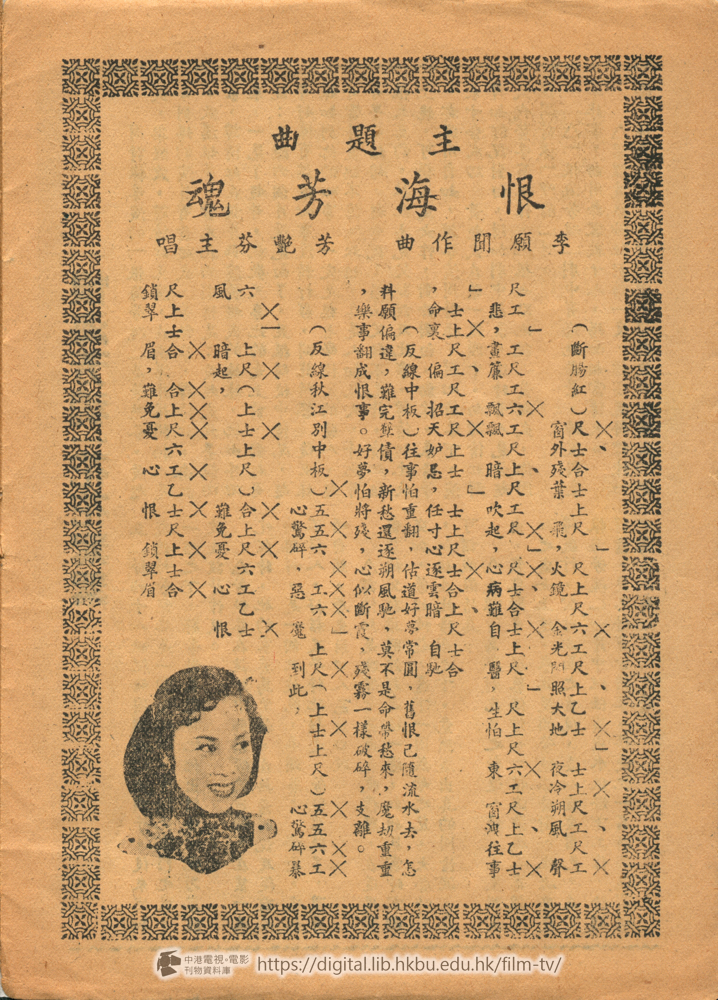 主題曲
恨海芳魂
李願聞作曲　芳艷芬主唱
（斷腸紅）尺士合士上尺　尺上尺六工尺上乙士　士上尺工尺工
窗外殘葉　飛，火鏡　金光閃照大地　夜冷朔風　聲
尺工　工尺工六工尺上尺工尺　尺士合士上尺　尺上尺六工尺上乙士
悲，畫簾　飄飄　暗　吹起，心病難自　醫，生怕　東　窗　往事
士上尺工尺工尺上士　士上尺士合上尺士合
，命裏　偏　招天妒忌，任寸心逐雲暗　自馳
（反線中板）往事怕重翻，估道好夢常圓，舊恨已隨流水去，怎
料願偏違，難完孽債，新愁還逐朔風馳，莫不是命帶愁來，魔劫重重
，樂事翻成恨事。好夢怕將殘，心似斷霞，殘霧一樣破碎，支離。
（反線秋江別中板）五五六　工六　上尺（上士上尺）五五六工
心驚碎，惡　魔　到此，　心驚碎暴
六　上尺（上士上尺）合上尺六工乙士
風　暗起，　難免憂　心　恨
尺上士合　合上尺六工乙士尺上士合
鎖翠　眉，難免憂　心　恨　鎖翠眉
中港電視·電影
刊物資料庫
https://digital.lib.hkbu.edu.hk/film-tv/